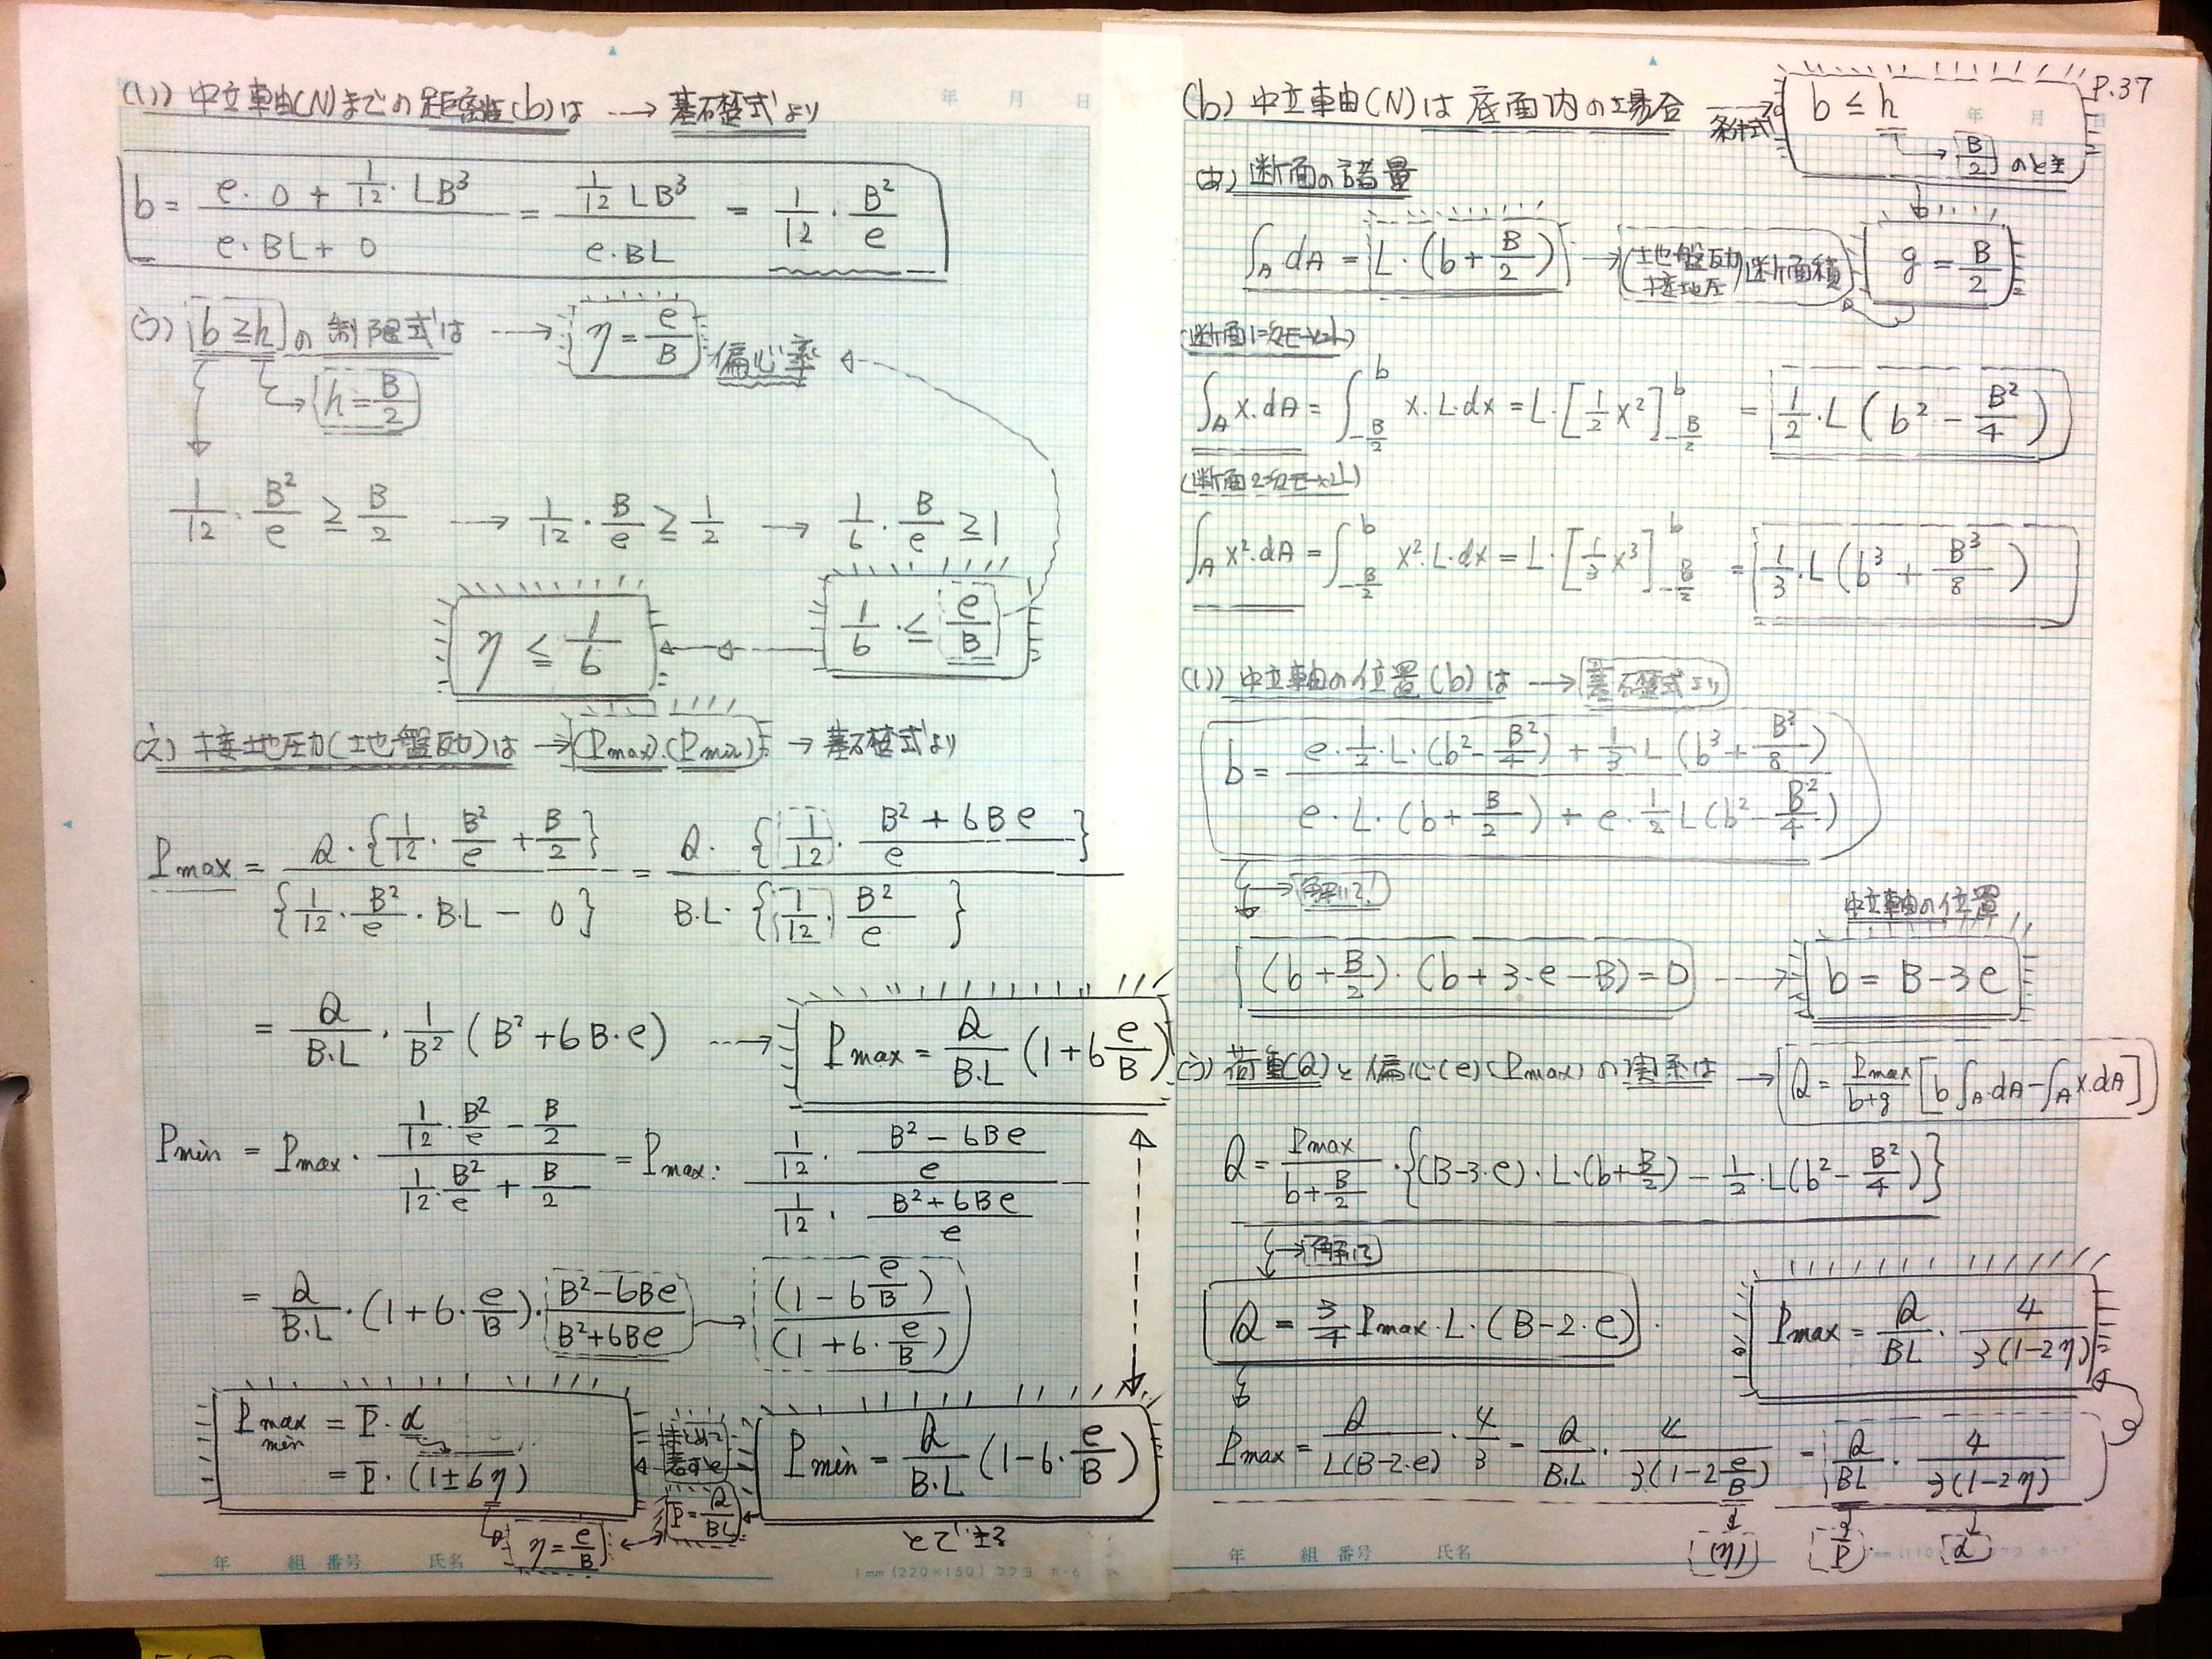 (い) 中立軸(N)までの距離(b)は → 基礎式より
b = (e・0 + 1/12・LB³)/(e・BL + 0) = (1/12 LB³)/(e・BL) = 1/12・B²/e
(う) b ≥ h の制限式は → η = e/B 偏心率
h = B/2
1/12・B²/e ≥ B/2 → 1/12・B/e ≥ 1/2 → 1/6・B/e ≥ 1
η ≤ 1/6 ← 1/6・≤ e/B
(え) 接地圧(地盤反力)は → (Pmax)・(Pmin) → 基礎式より
Pmax = Q・{1/12・B²/e + B/2}/{1/12・B²/e・B.L − 0} = Q・{1/12・(B² + 6Be)/e}/B.L・{1/12・B²/e}
= Q/B.L・1/B²(B² + 6B・e) → Pmax = Q/B.L (1 + 6 e/B)
Pmin = Pmax・(1/12・B²/e − B/2)/(1/12・B²/e + B/2) = Pmax・(1/12・(B² − 6Be)/e)/(1/12・(B² + 6Be)/e)
= Q/B.L・(1 + 6・e/B)・(B² − 6Be)/(B² + 6Be) → (1 − 6 e/B)/(1 + 6・e/B)
Pmax min = P̄・α
= P̄・(1 ± 6η)
Pmin = Q/B.L (1 − 6・e/B)
η = e/B
P̄ = Q/BL
年 組 番号 氏名
1mm (220×150) コクヨ ホ-6
P.37
年 月 日
(b) 中立軸(N)は底面内の場合 → 条件式 b ≤ h → B/2 のとき
(あ) 断面の諸量
∫A dA = L・(b + B/2) → (地盤反力 接地圧) 断面積
g = B/2
(断面1次モーメント)
∫A x.dA = ∫ −B/2 b x.L.dx = L・[1/2 x²] −B/2 b = 1/2・L(b² − B²/4)
(断面2次モーメント)
∫A x².dA = ∫ −B/2 b x².L.dx = L・[1/3 x³] −B/2 b = 1/3・L(b³ + B³/8)
(い) 中立軸の位置(b)は → 基礎式より
b = (e・1/2・L・(b² − B²/4) + 1/3・L(b³ + B²/8))/(e・L・(b + B/2) + e・1/2 L(b² − B²/4))
→ 解いて!
中立軸の位置
(b + B/2)・(b + 3・e − B) = 0 → b = B − 3e
(う) 荷重(Q)と偏心(e)(Pmax)の関係は → Q = Pmax/(b+g) [b∫A.dA − ∫A x.dA]
Q = Pmax/(b + B/2)・{(B − 3・e)・L・(b + B/2) − 1/2・L(b² − B²/4)}
→ 解いて
Q = 3/4 Pmax・L・(B − 2・e)
Pmax = Q/BL・4/3(1 − 2η)
Pmax = Q/L(B − 2・e)・4/3 = Q/B.L・4/3(1 − 2 e/B) = Q/BL・4/3(1 − 2η)
(η) P̄ α
年 組 番号 氏名